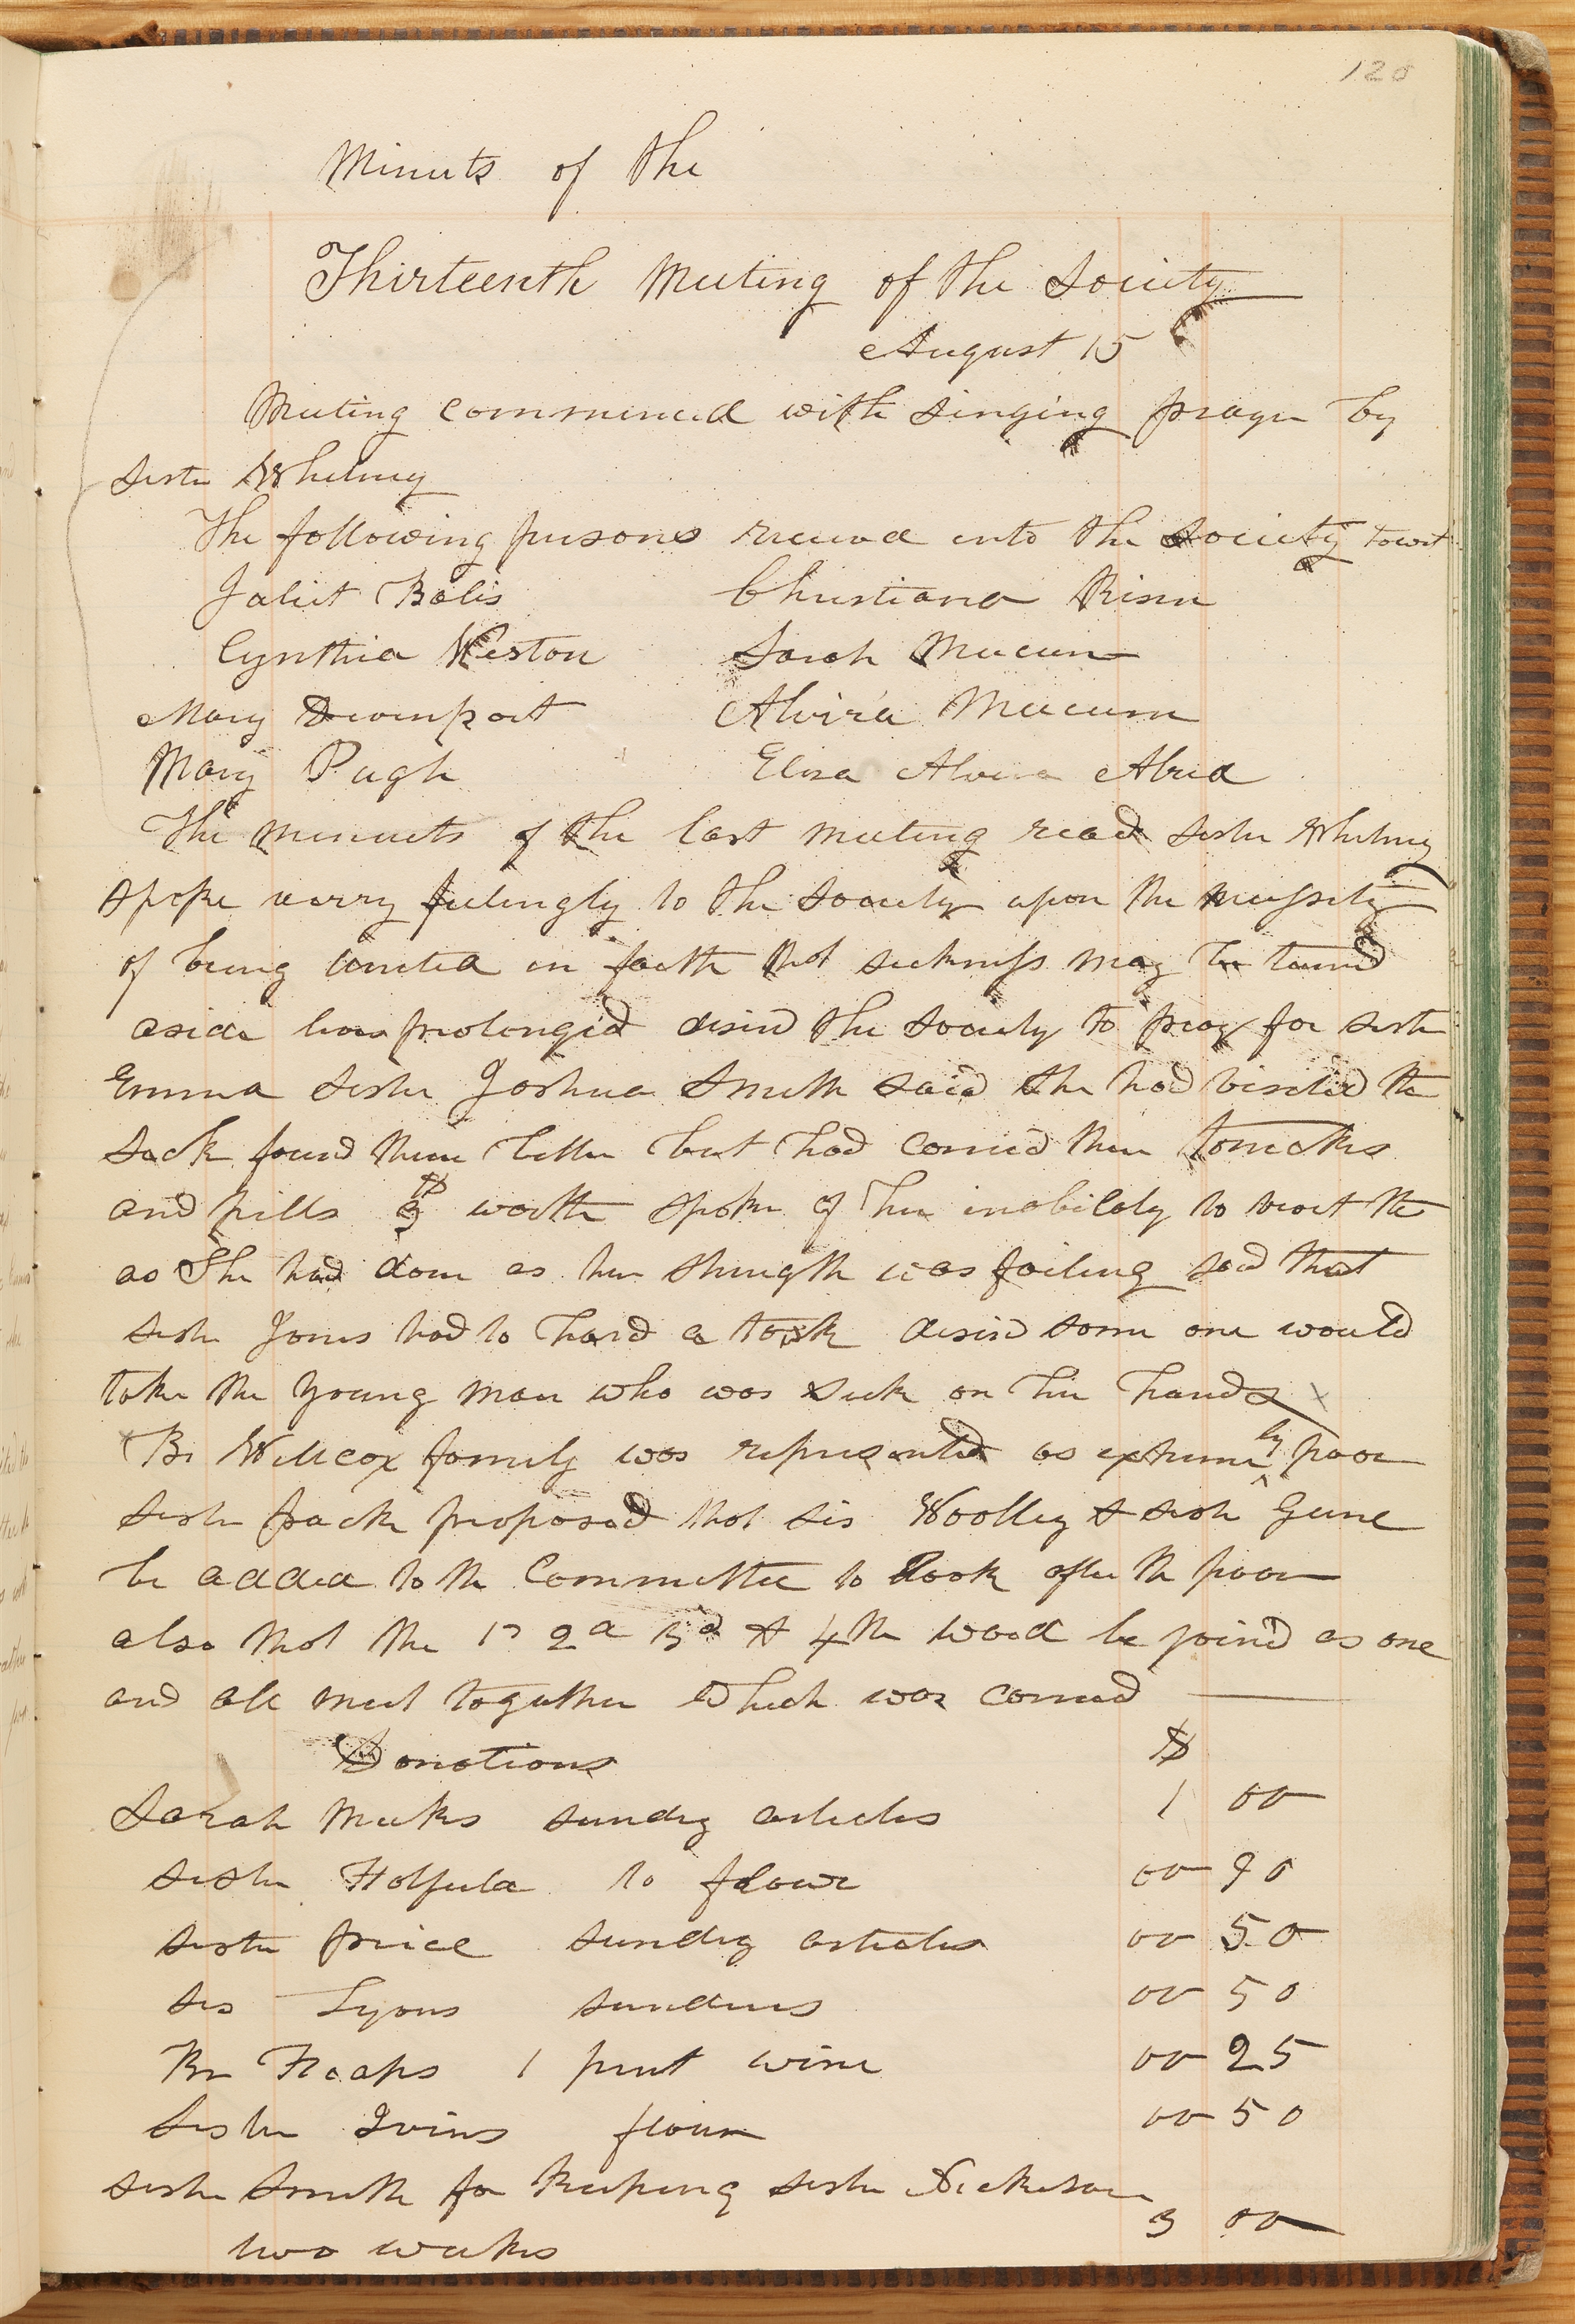 120
Minuts of the
Thirteenth Meeting of the Society
August 15
Meeting commenced with singing prayer by
sister Whitney
The following persons received into the Society towit
Juliet Bolis Christiana Riser
Cynthia Weston Sarah Mecum
Mary Davenport Alvira Mecum
Mary Pugh Eliza Alvira Alred
The minuets of the last meeting read sister Whitney
spoke verry feelingly to the Society upon the necessity
of being united in faith that sickness may be turned
aside lives prolonged desired the Society to pray for sister
Emma sister Joshua Smith said she had visited the
sick found them better but had carried them tonicks
and pills 3 $ worth spoke of her inability to visit the
as she had done as her strength was failing said that
sister Jones had to hard a task desired some one would
take the young man who was sick on her hands x
x Br Willcox family was represented as extreme ly poor
sister pack proposed that sis Woolley & sister Gene
be added to the Committee to look after the poor
also that the 1st 2d 3d & 4th ward be joined as one
and all meet together which was carried
Donations $
Sarah Meeks sundry articles 1 00
sister Holfield to flour 00 90
sister price sundry articles 00 50
sis Lyons sundries 00 50
Br Heaps 1 pint wine 00 25
Sister Ivins flour 00 50
sister Smith for keeping sister Nickerson
two weeks 3 00